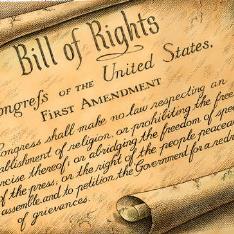 Bill of Rights
Congreſs OF THE United States,
FIRST AMENDMENT
Congress shall make no law respecting an
establishment of religion, or prohibiting the free
exercise thereof; or abridging the freedom of speech
of the press, or the right of the people peaceably
assemble, and to petition the Government for a redress
of grievances.